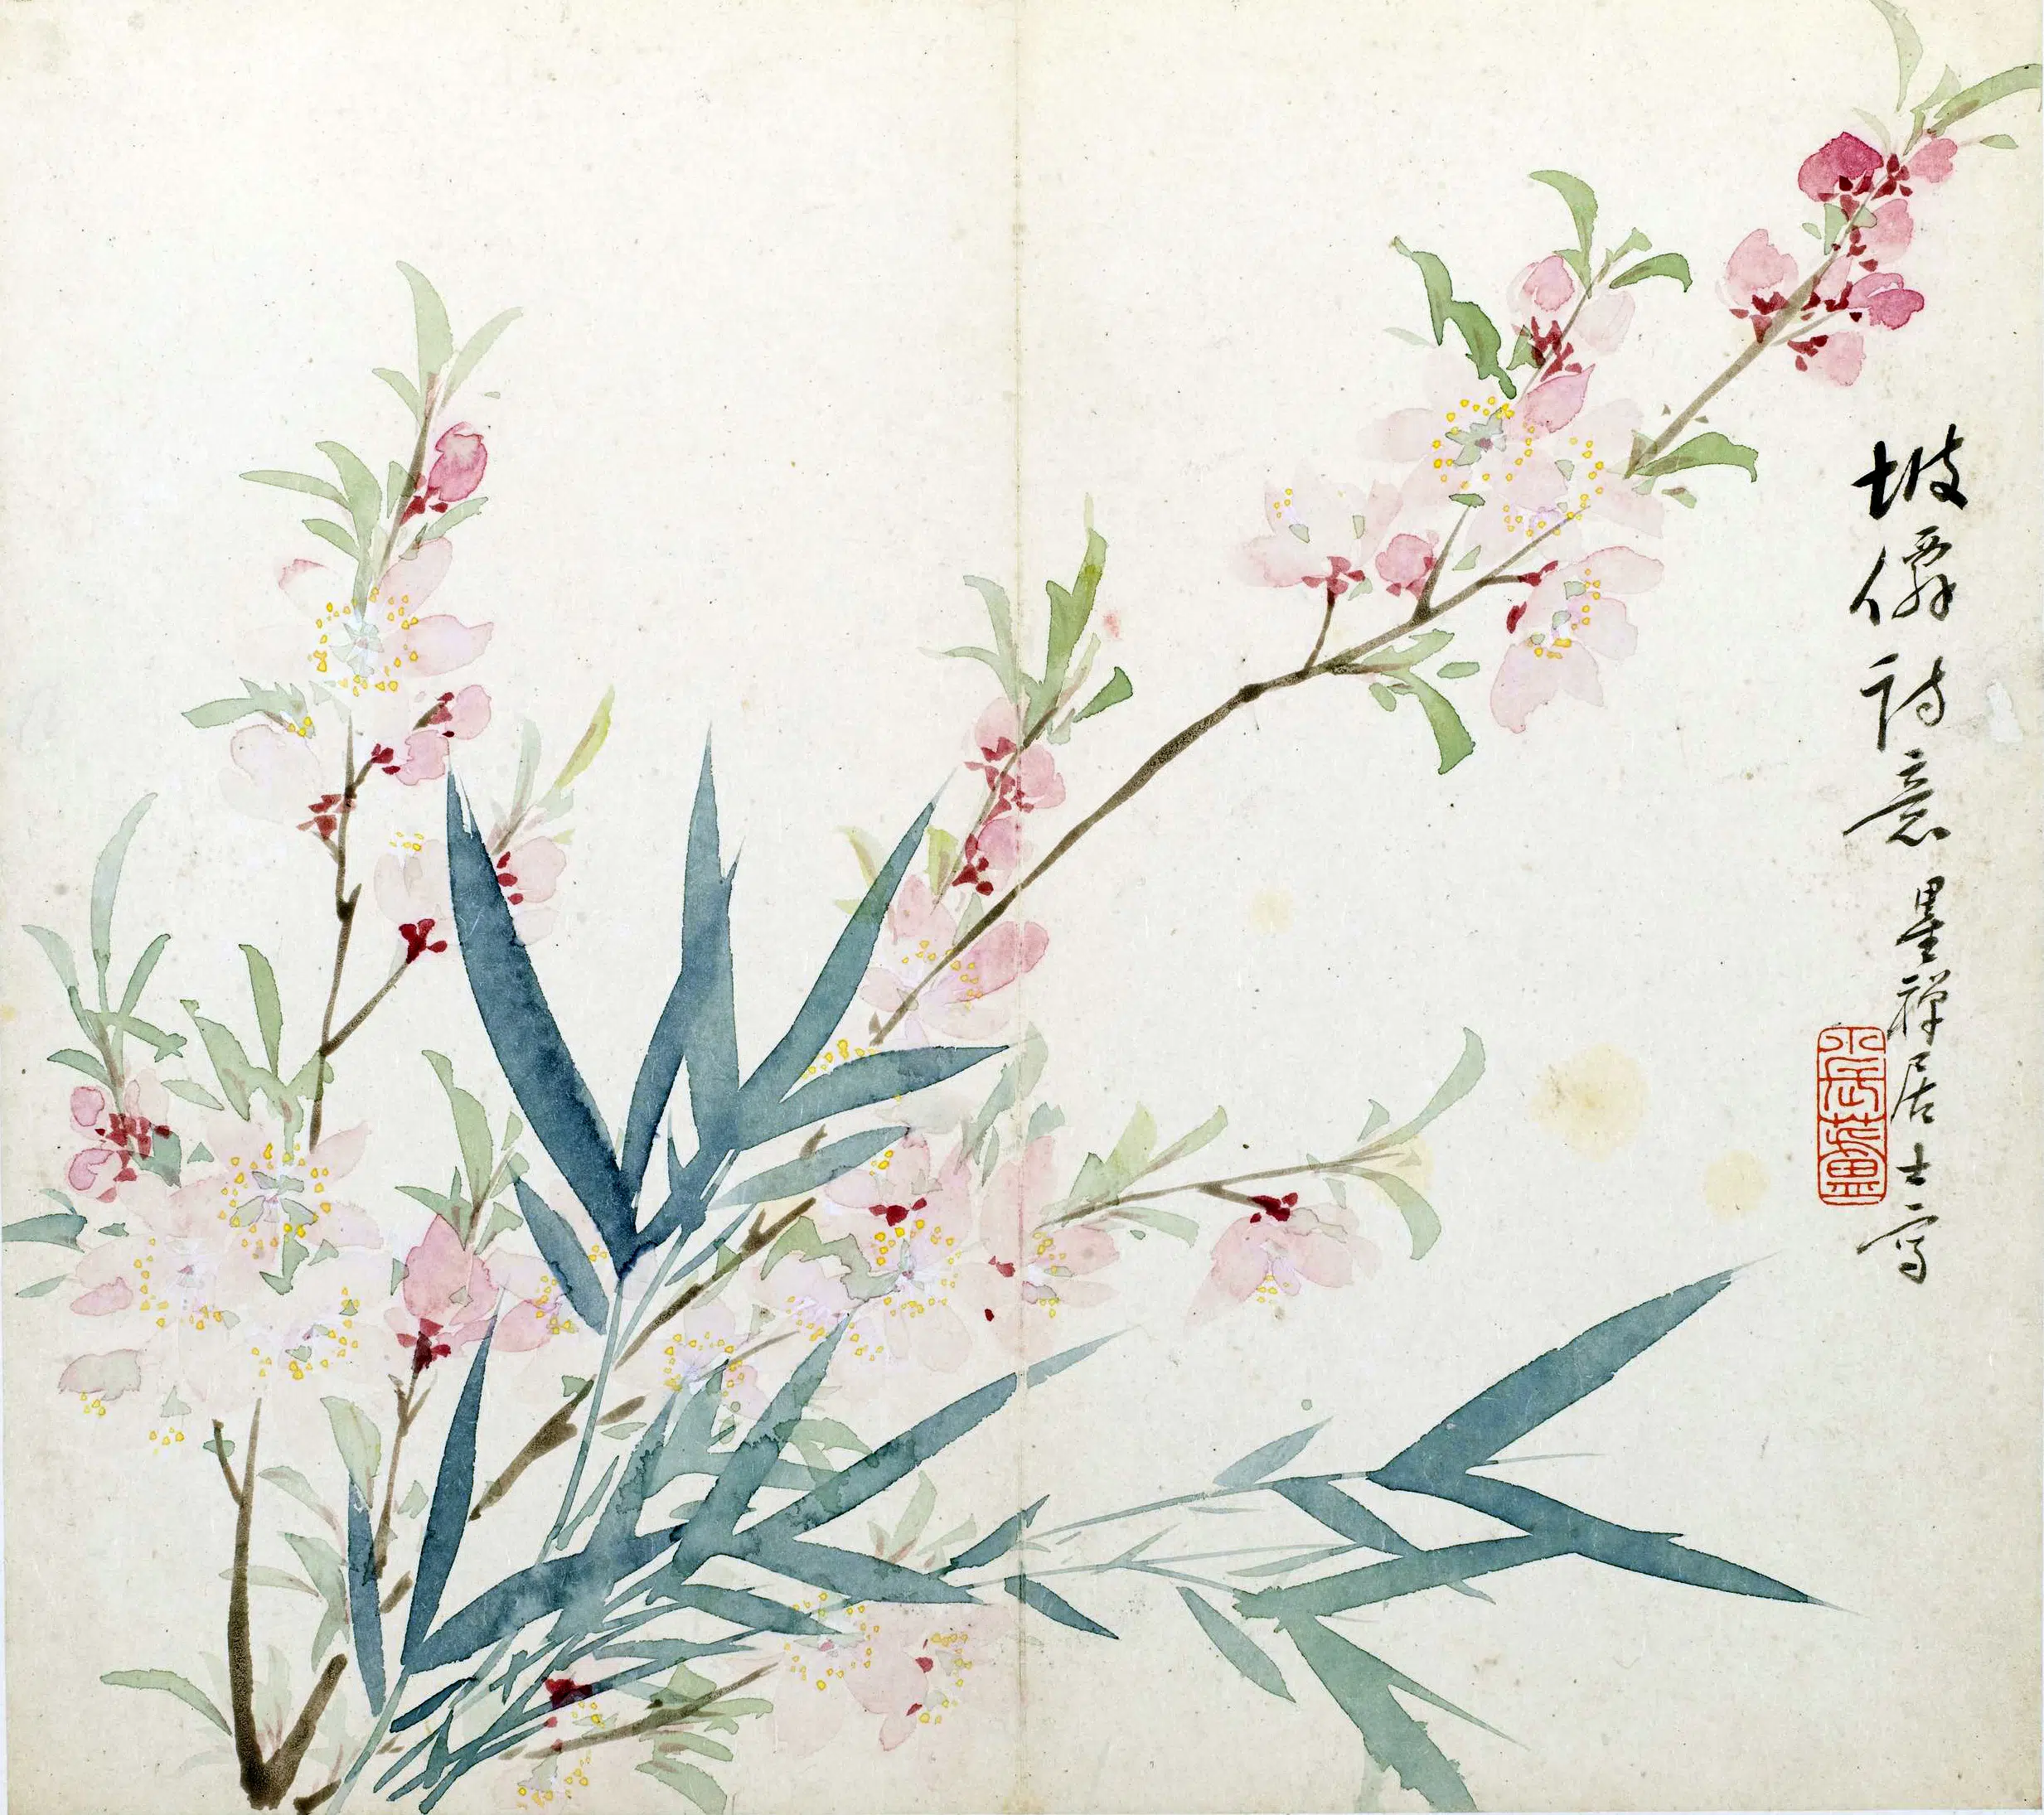 坡僊詩意 墨禪居士寫